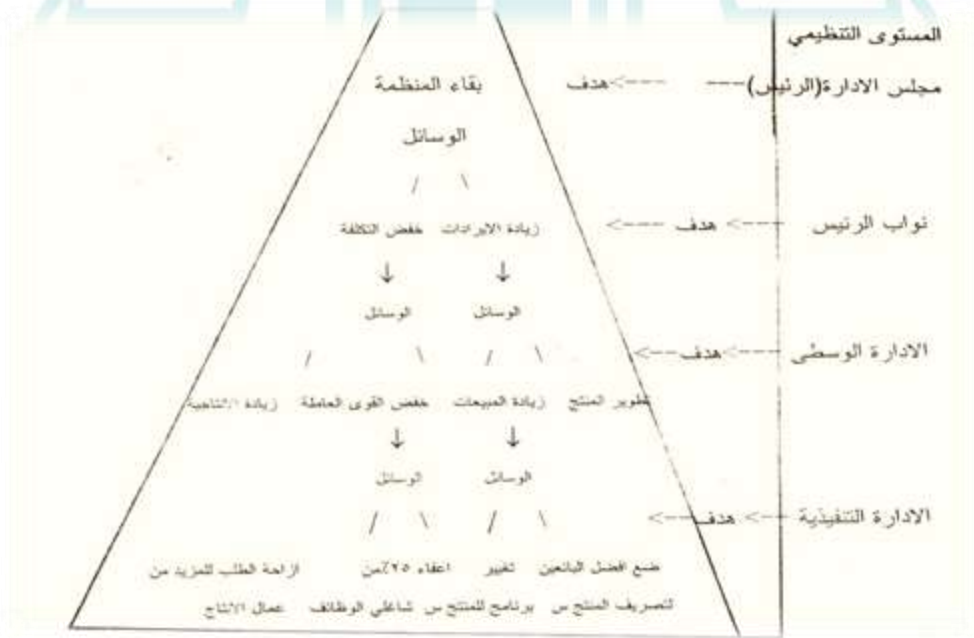 المستوى التنظيمي
مجلس الادارة(الرئيس)---- ---->هدف بقاء المنظمة
الوسائل
/ \
نواب الرئيس ----> هدف ----> زيادة الايرادات خفض التكلفة
↓ ↓
الوسائل الوسائل
/ \ / \
الادارة الوسطى ---->هدف---->
تطوير المنتج زيادة المبيعات خفض القوى العاملة زيادة الانتاجية
↓ ↓
الوسائل الوسائل
/ \ / \
الادارة التنفيذية ----> هدف---->
ضع افضل البائعين تغيير اعفاء ٢٥٪من ازاحة الطلب للمزيد من
لتصريف المنتج س برنامج للمنتج س شاغلي الوظائف عمال الانتاج